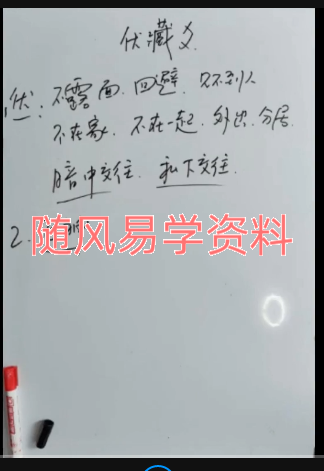 伏藏爻
1伏：不露面．回避．见不到人
不在家．不在一起．外出．分居．
暗中交往．私下交往．
随风易学资料
2．